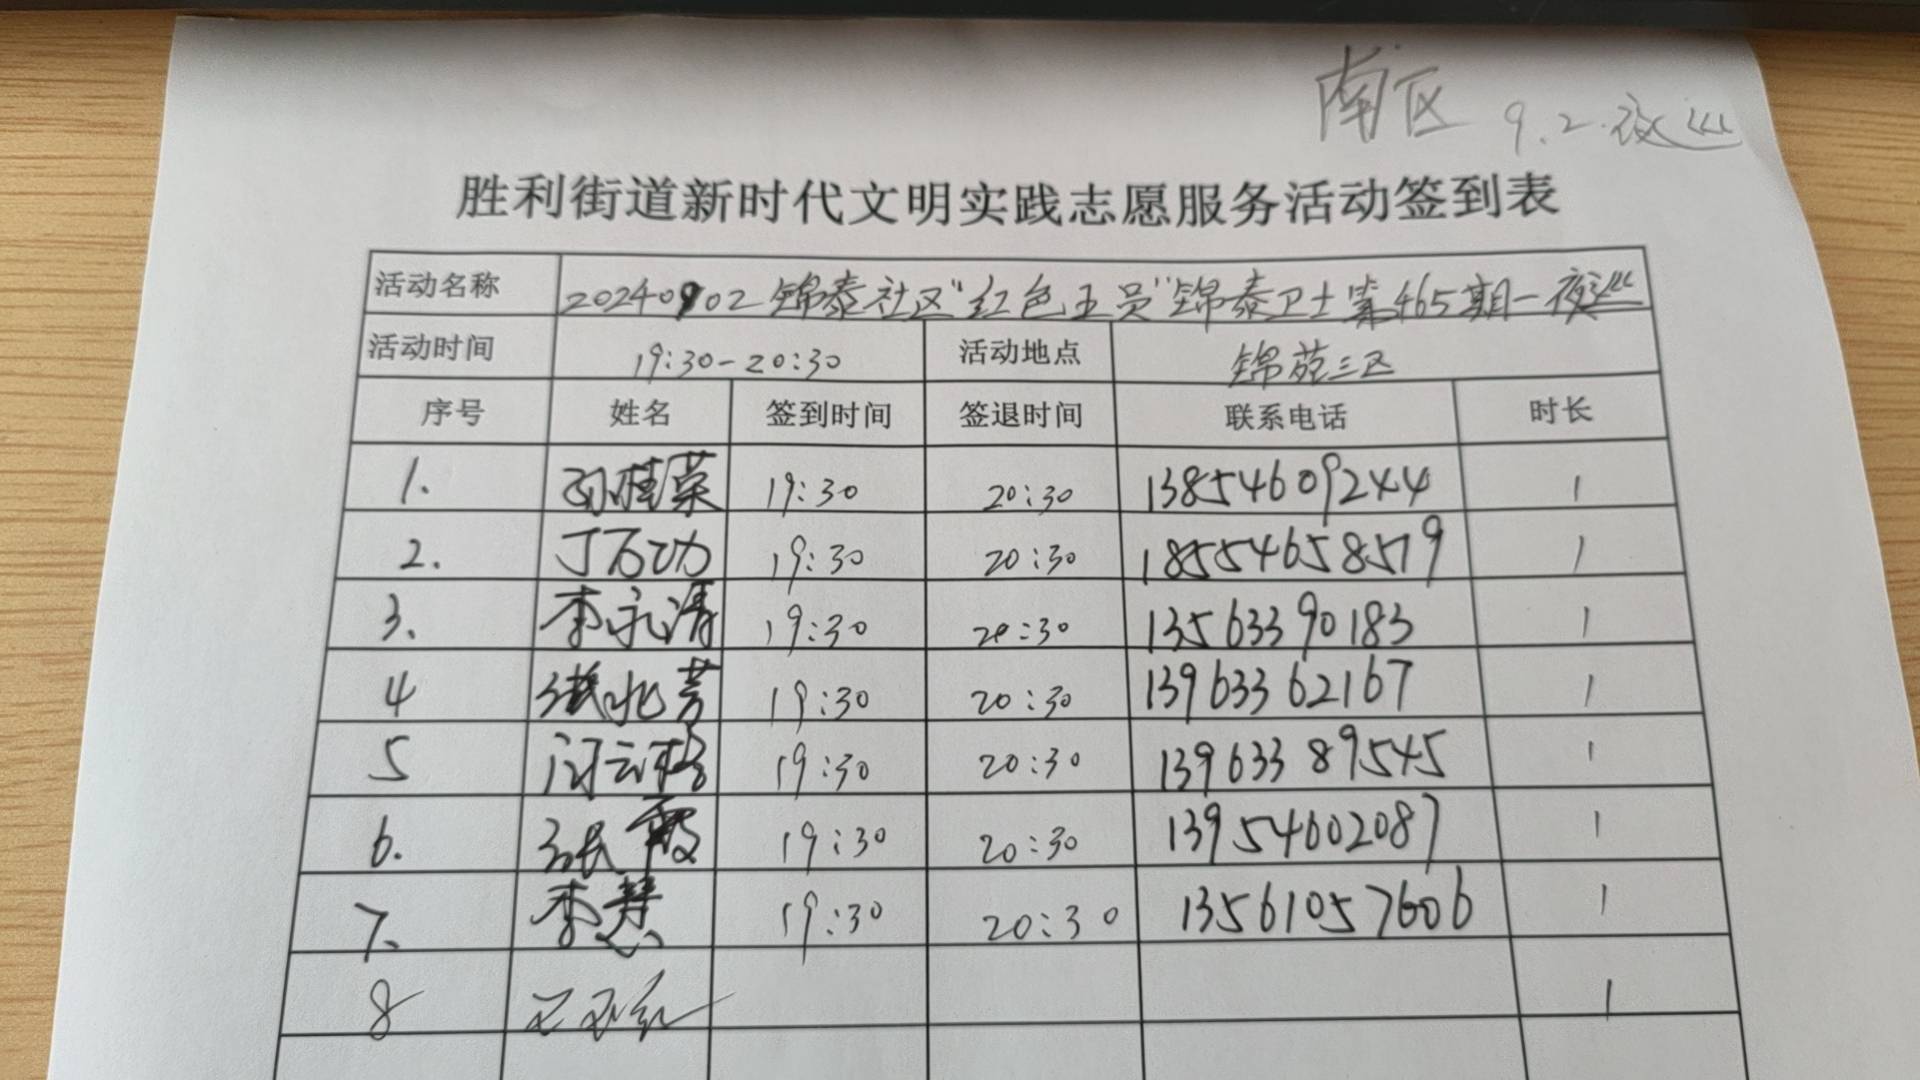 南区 9.2.夜巡
胜利街道新时代文明实践志愿服务活动签到表
活动名称 20240902锦泰社区"红色五员"锦泰卫士第465期一夜巡
活动时间 19:30-20:30 活动地点 锦苑三区
序号 姓名 签到时间 签退时间 联系电话 时长
1. 孙桂荣 19:30 20:30 13854609244 1
2. 丁石功 19:30 20:30 18554658579 1
3. 李永清 19:30 20:30 13563390183 1
4 张兆芳 19:30 20:30 13963362167 1
5 19:30 20:30 13963389545 1
6. 张霞 19:30 20:30 13954602087 1
7. 李慧 19:30 20:30 13561057606 1
8 1